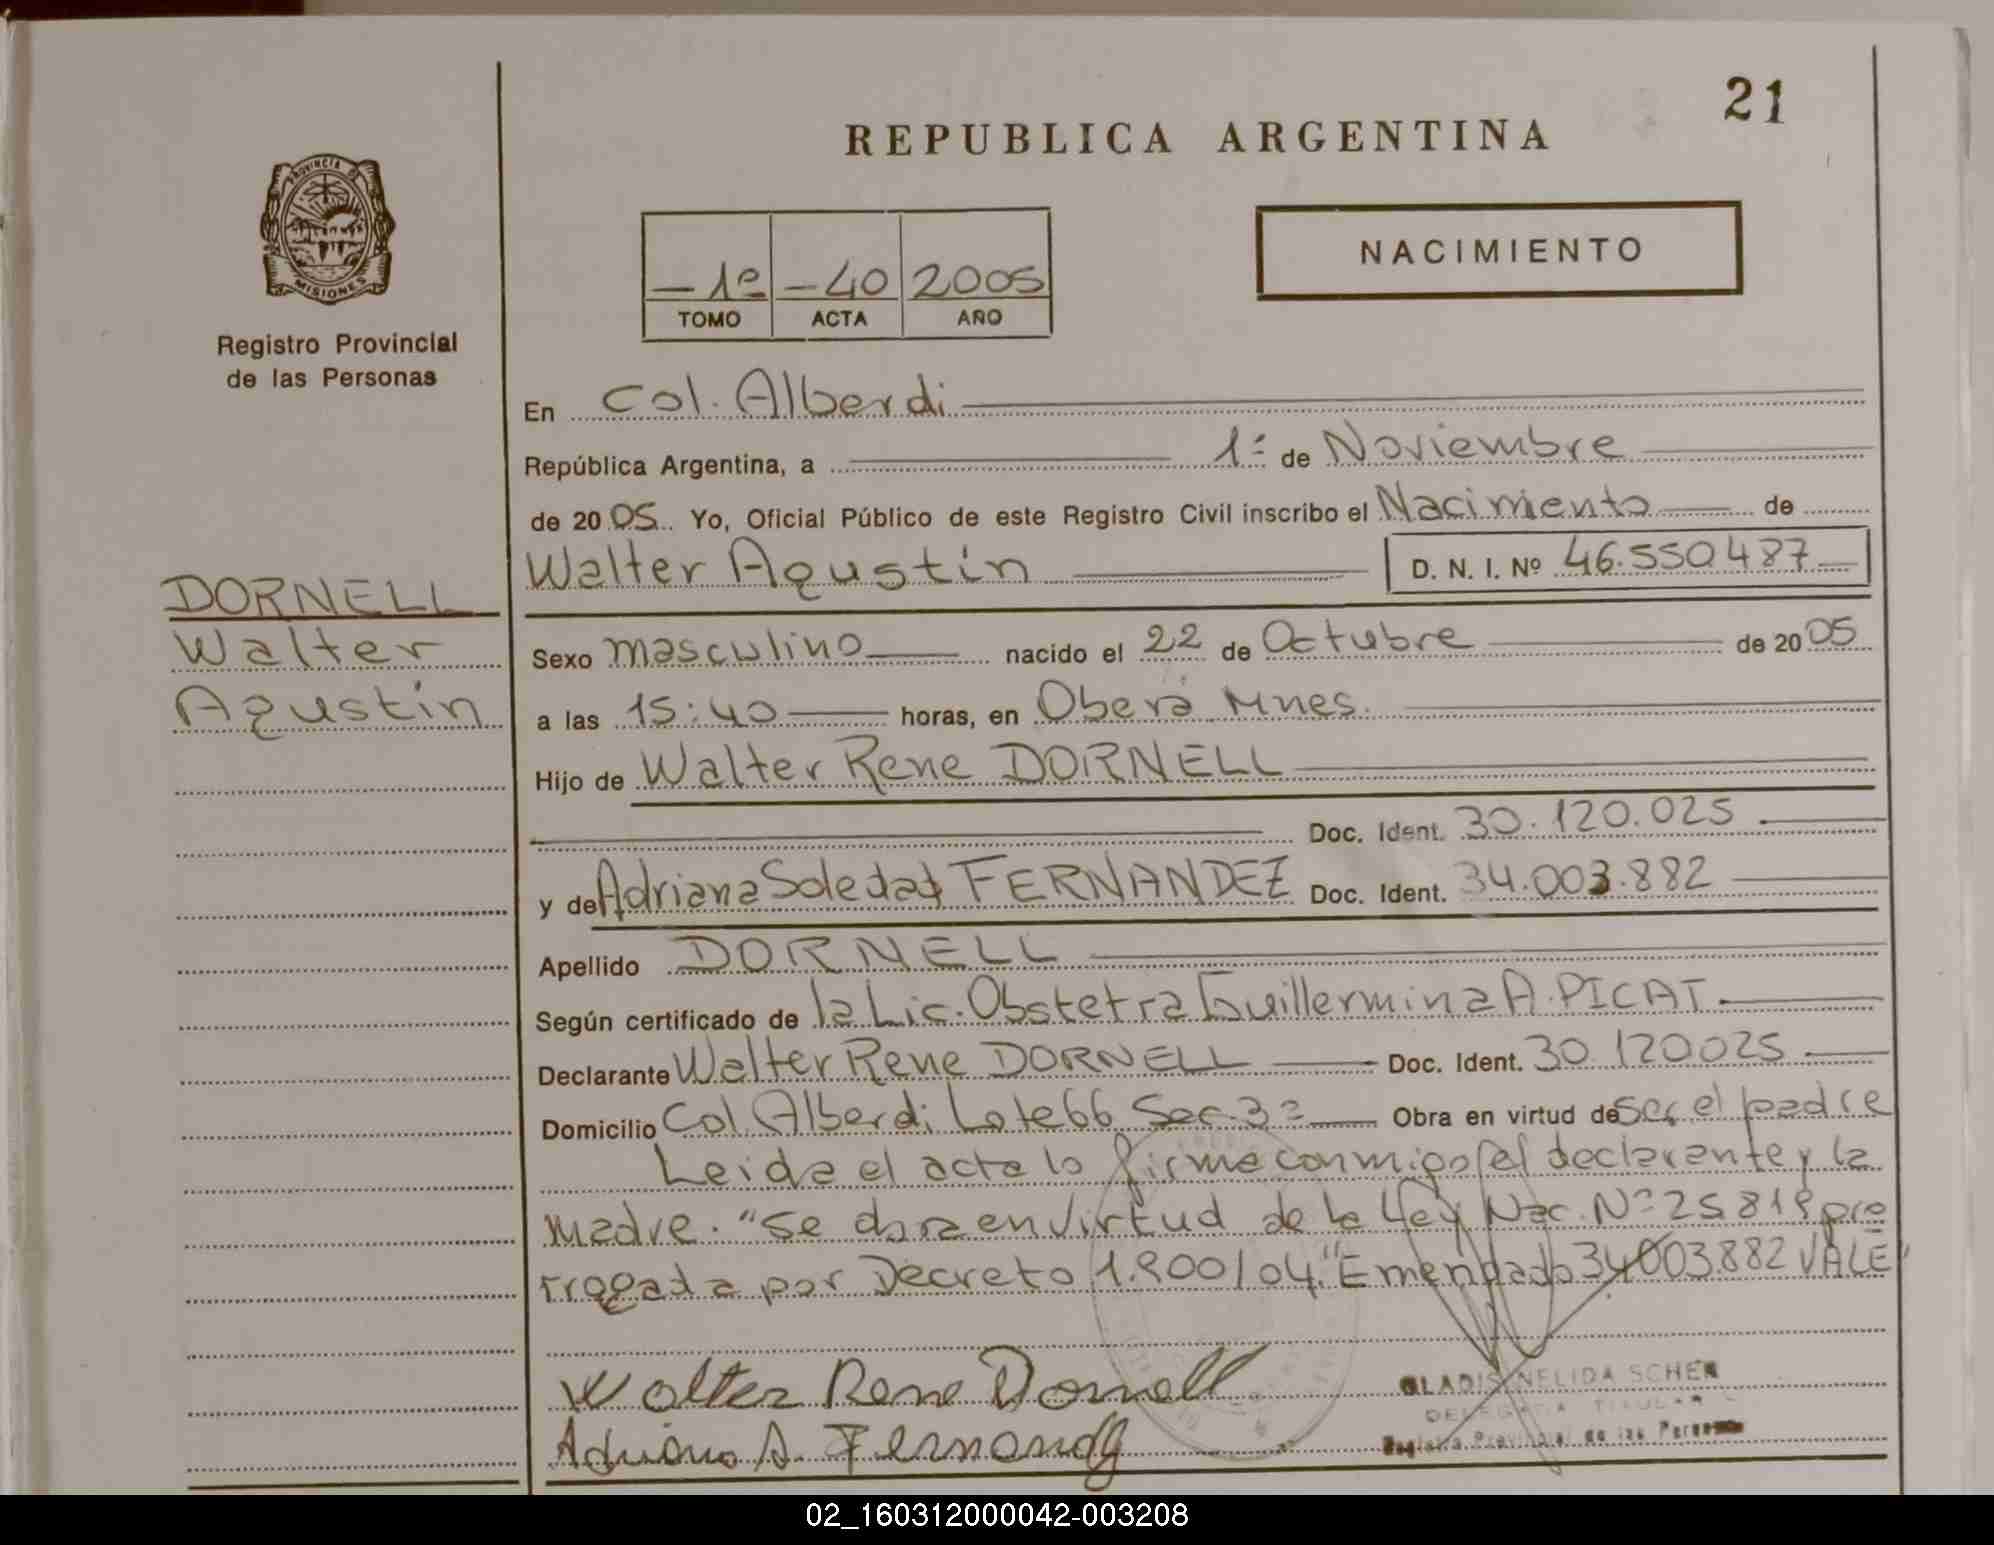 21
REPUBLICA ARGENTINA
PROVINCIA DE
MISIONES
Registro Provincial
de las Personas
NACIMIENTO
- 1º - 40 2005
TOMO ACTA AÑO
En Col. Alberdi
República Argentina, a 1º de Noviembre
de 2005. Yo, Oficial Público de este Registro Civil inscribo el Nacimiento de
Walter Agustín D. N. I. Nº 46.550487
DORNELL
Walter
Agustín
Sexo masculino nacido el 22 de Octubre de 2005
a las 15:40 horas, en Oberá Mnes.
Hijo de Walter Rene DORNELL
Doc. Ident. 30.120.025
y de Adriana Soledad FERNANDEZ Doc. Ident. 34.003.882
Apellido DORNELL
Según certificado de la Lic. Obstetra Guillermina A. PICAT
Declarante Walter Rene DORNELL Doc. Ident. 30.120025
Domicilio Col. Alberdi Lote 66 Sec. 3ª Obra en virtud de ser el padre
Leida el acta lo firma conmigo el declarante y la
madre. "Se en virtud de la Ley Nac. Nº 25819 pro
rrogada por Decreto 1.900/04." Emendado 34003.882 VALE"
Walter Rene Dornell
Adriana S. Fernandez
GLADIS NELIDA SCHER
DELEGADA TITULAR
Registro Provincial de las Personas
02_160312000042-003208